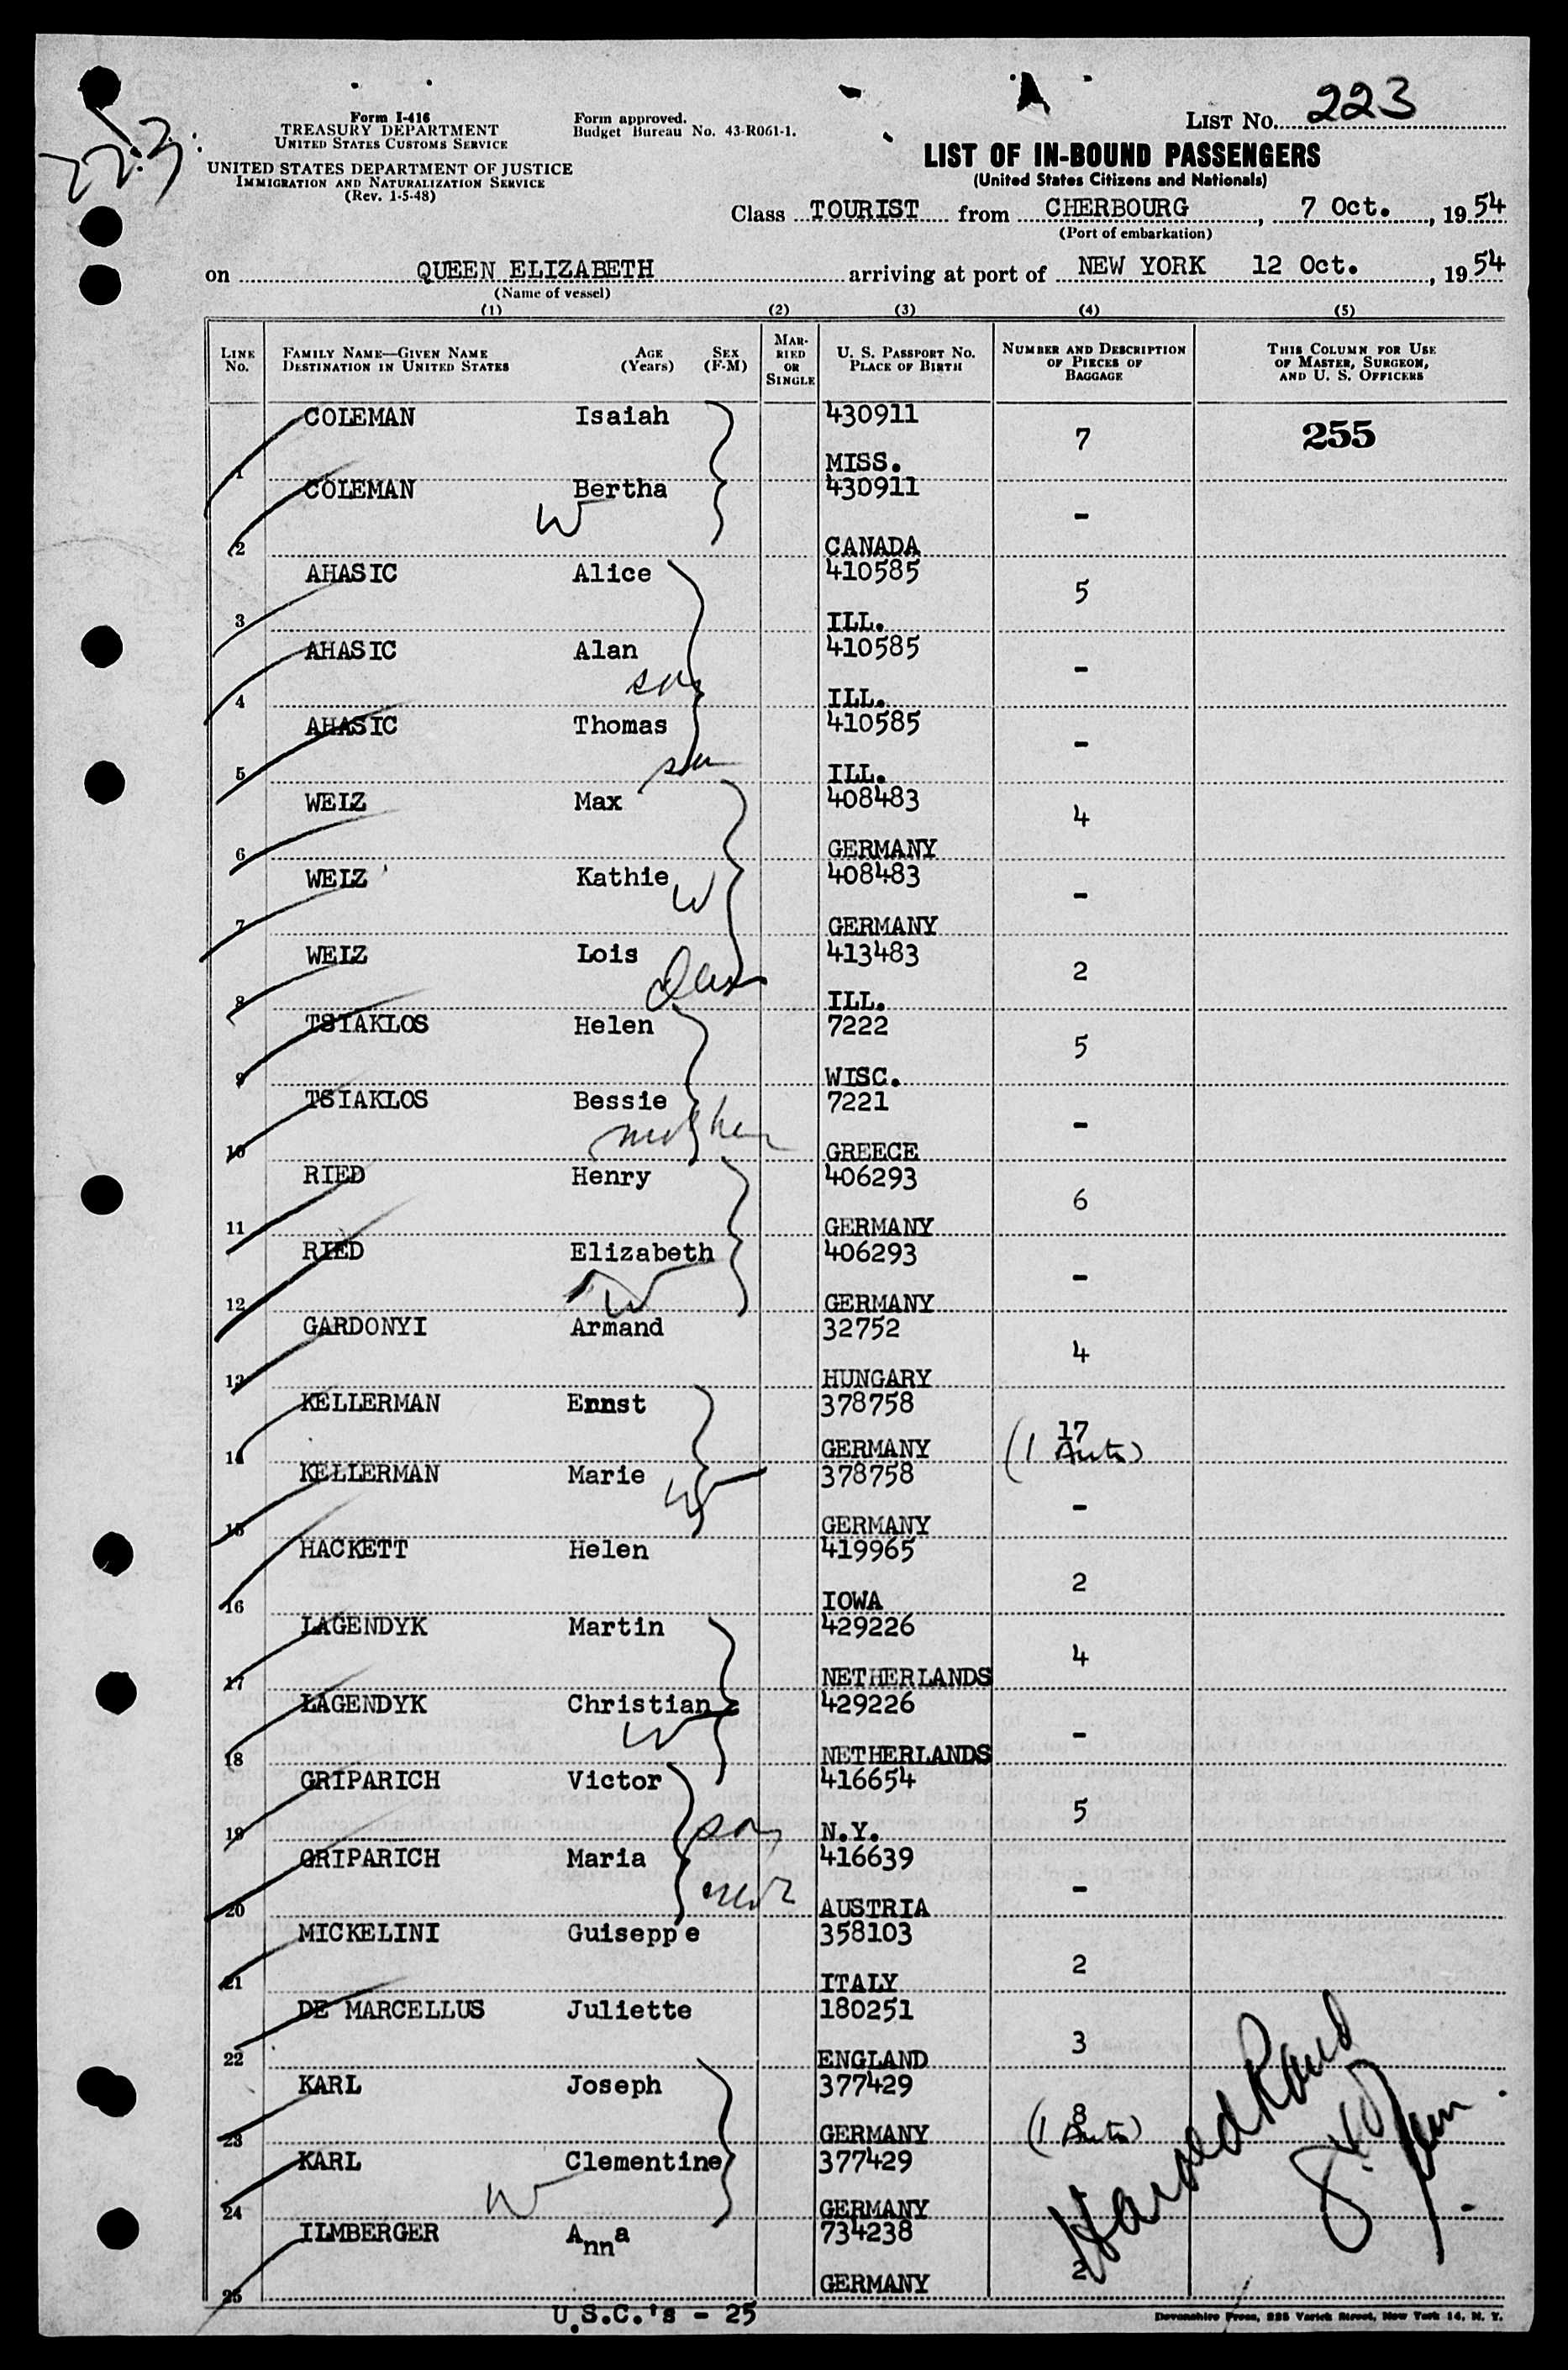 223
22.3.
Form I-416
TREASURY DEPARTMENT
UNITED STATES CUSTOMS SERVICE
UNITED STATES DEPARTMENT OF JUSTICE
IMMIGRATION AND NATURALIZATION SERVICE
(Rev. 1-5-48)
Form approved.
Budget Bureau No. 43-R061-1.
LIST NO. 223
LIST OF IN-BOUND PASSENGERS
(United States Citizens and Nationals)
Class TOURIST from CHERBOURG, 7 Oct., 1954
(Port of embarkation)
on QUEEN ELIZABETH arriving at port of NEW YORK 12 Oct., 1954
(Name of vessel)
(1) (2) (3) (4) (5)
LINE NO.
FAMILY NAME—GIVEN NAME
DESTINATION IN UNITED STATES
AGE (Years)
SEX (F-M)
MARRIED OR SINGLE
U. S. PASSPORT NO.
PLACE OF BIRTH
NUMBER AND DESCRIPTION OF PIECES OF BAGGAGE
THIS COLUMN FOR USE OF MASTER, SURGEON, AND U. S. OFFICERS
COLEMAN Isaiah 430911 7 255
1 MISS.
COLEMAN Bertha W 430911 -
2 CANADA
AHASIC Alice 410585 5
3 ILL.
AHASIC Alan son 410585 -
4 ILL.
AHASIC Thomas son 410585 -
5 ILL.
WEIZ Max 408483 4
6 GERMANY
WEIZ Kathie W 408483 -
7 GERMANY
WEIZ Lois 413483 2
8 ILL.
TSIAKLOS Helen 7222 5
9 WISC.
TSIAKLOS Bessie mother 7221 -
10 GREECE
RIED Henry 406293 6
11 GERMANY
RIED Elizabeth W 406293 -
12 GERMANY
GARDONYI Armand 32752 4
13 HUNGARY
KELLERMAN Ennst 378758 17
14 GERMANY (1 Auto)
KELLERMAN Marie W 378758 -
15 GERMANY
HACKETT Helen 419965 2
16 IOWA
LAGENDYK Martin 429226 4
17 NETHERLANDS
LAGENDYK Christian W 429226 -
18 NETHERLANDS
GRIPARICH Victor son 416654 5
19 N.Y.
GRIPARICH Maria 416639 -
20 AUSTRIA
MICKELINI Guiseppe 358103 2
21 ITALY
DE MARCELLUS Juliette 180251 3
22 ENGLAND
KARL Joseph 377429 8
23 GERMANY (1 Auto)
KARL Clementine W 377429 -
24 GERMANY
ILMBERGER Anna 734238 2
25 GERMANY
U.S.C.'s - 25
Devonshire Press, 225 Varick Street, New York 14, N. Y.